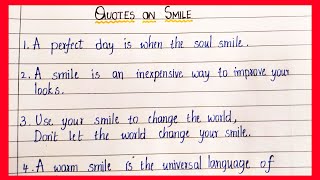 QUOTES ON SMILE
1. A perfect day is when the soul smile.
2. A smile is an inexpensive way to improve your
looks.
3. Use your smile to change the world,
Don't let the world change your smile.
4. A warm smile is the universal language of